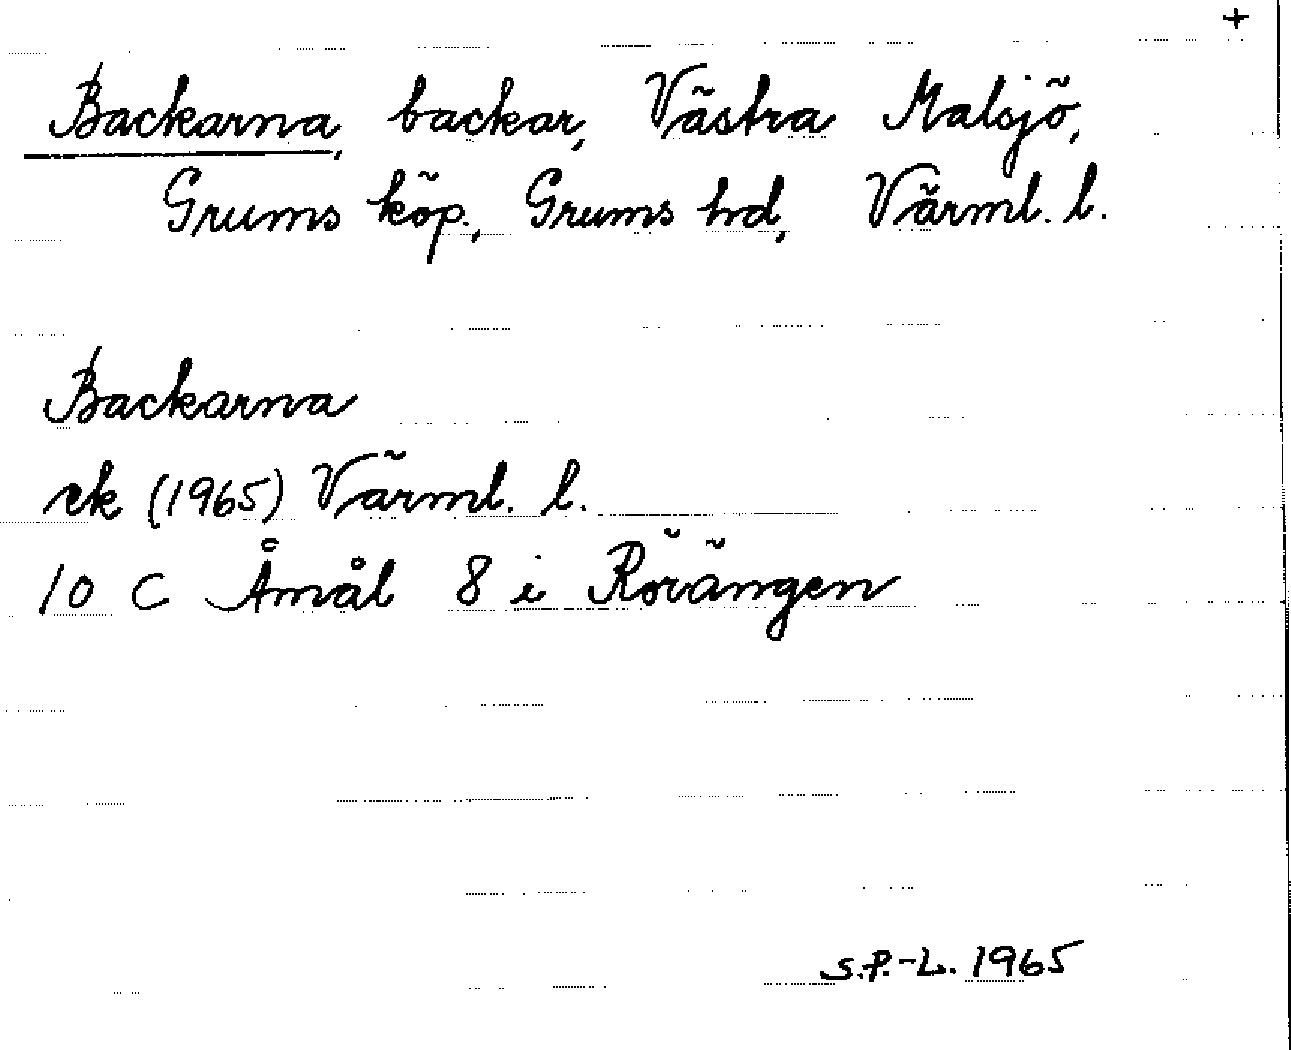 +
Backarna, backar, Västra Malsjö,
Grums köp., Grums hd, Värml. l.
Backarna
ek (1965) Värml. l.
10 C Åmål 8 i Rövängen
S.P.-L. 1965